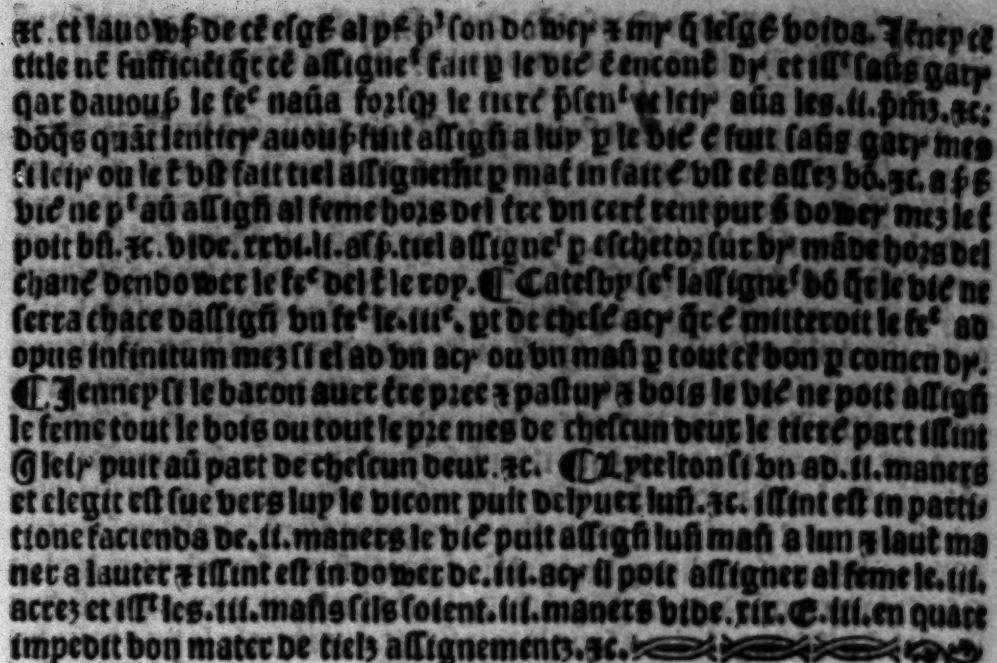 ⁊c. et lauowꝑ de cē esgē al pē pꝛ son dower ⁊ my q̄ lesgē boīda. Jēney cē
title nē sufficiēt q̄r cē assigneᶜ fait ꝑ le vic̄ ē encont̄ dr̄. et issᶦᶜ saūs gary
qar dauouꝑ le feᶜ naūa forsqꝫ le tierc̄ p̄senᶜ et leir aūa les .ii. p̄mꝫ. ⁊c.
dōq̄s quāt lentier auouꝑ fuit assigñ a luy ꝑ le vic̄ ē fuit saūs gary mes
si leir ou le t̄ vst fait tiel assignem̄t ꝑ mat̄ in fait ē vst eē asseꝫ bō. ⁊c.
vic̄ ne pᶜ aū assigñ al feme hors del tr̄e vn cert̄ rent pur sō dower meꝫ le t̄
poit bñ. ⁊c. vide. xxvi. li. asꝑ. tiel assigneᶜ ꝑ eschetor sur br̄ māde hors del
chanc̄ dendower le feᶜ del t̄ le roy. ¶ Catesby seᶜ lassigneᶜ bō q̄r le vic̄ ne
serra chace dassigñ vn feᶜ le .iiiᶜ. pt de chesc̄ acr q̄r ē mitteroit le feᶜ ad
opus infinitum meꝫ si el ad vn acr ou vn mañ ꝑ tout cē bon ꝑ comen dr̄.
¶ Jenney si le baron auer tr̄e pree ⁊ pastur ⁊ bois le vic̄ ne poit assigñ
le feme tout le bois ou tout le pre mes de chescun deux le tierc̄ part issint
q̄ leir puit aū part de chescun deux. ⁊c. ¶ Lytelton si vn ad .ii. maners
et elegit est sue vers luy le vicont puit delyuer luñ. ⁊c. issint est in parti-
tione facienda de .ii. maners le vic̄ puit assigñ luñ mañ a lun ⁊ laut̄ ma
ner a lauter ⁊ issint est in dower de .iii. acr il poit assigner al feme le .iii.
acreꝫ et issᶦᶜ les .iii. mañs sils soient .iii. maners vide. xix. E. iii. en quare
impedit bon mater de tielꝫ assignementꝫ. ⁊c.